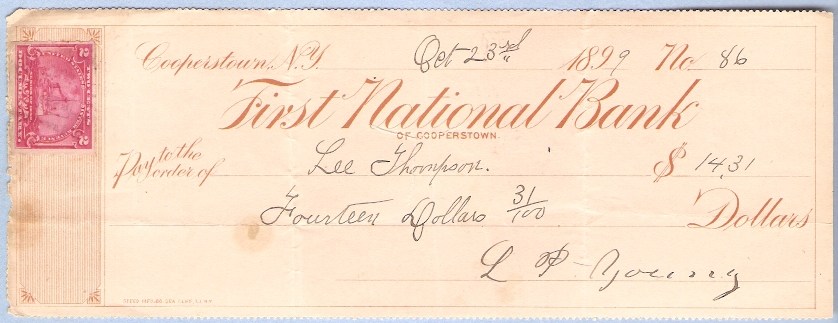 Cooperstown, N.Y. Oct 23rd 1899 No. 86
First National Bank
OF COOPERSTOWN.
Pay to the order of Lee Thompson. $ 14.31
Fourteen Dollars 31/100 Dollars
L P Young